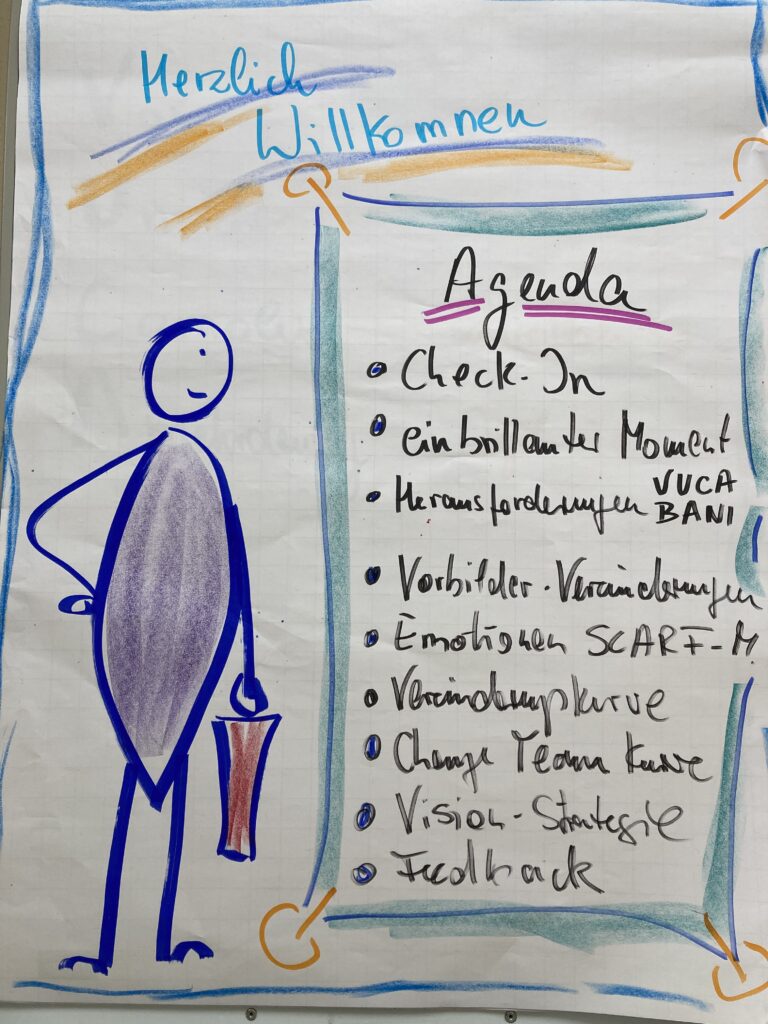 Herzlich
Willkommen
Agenda
Check-In
ein brillanter Moment
Herausforderungen VUCA
BANI
Vorbilder · Veränderungen
Emotionen SCARF-M.
Veränderungskurve
Change Team Kurve
Vision - Strategie
Feedback